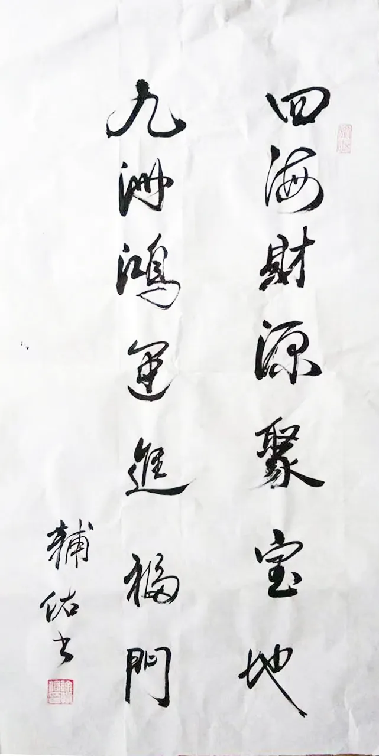 四海財源聚宝地
九洲鴻運進福門
輔佑书